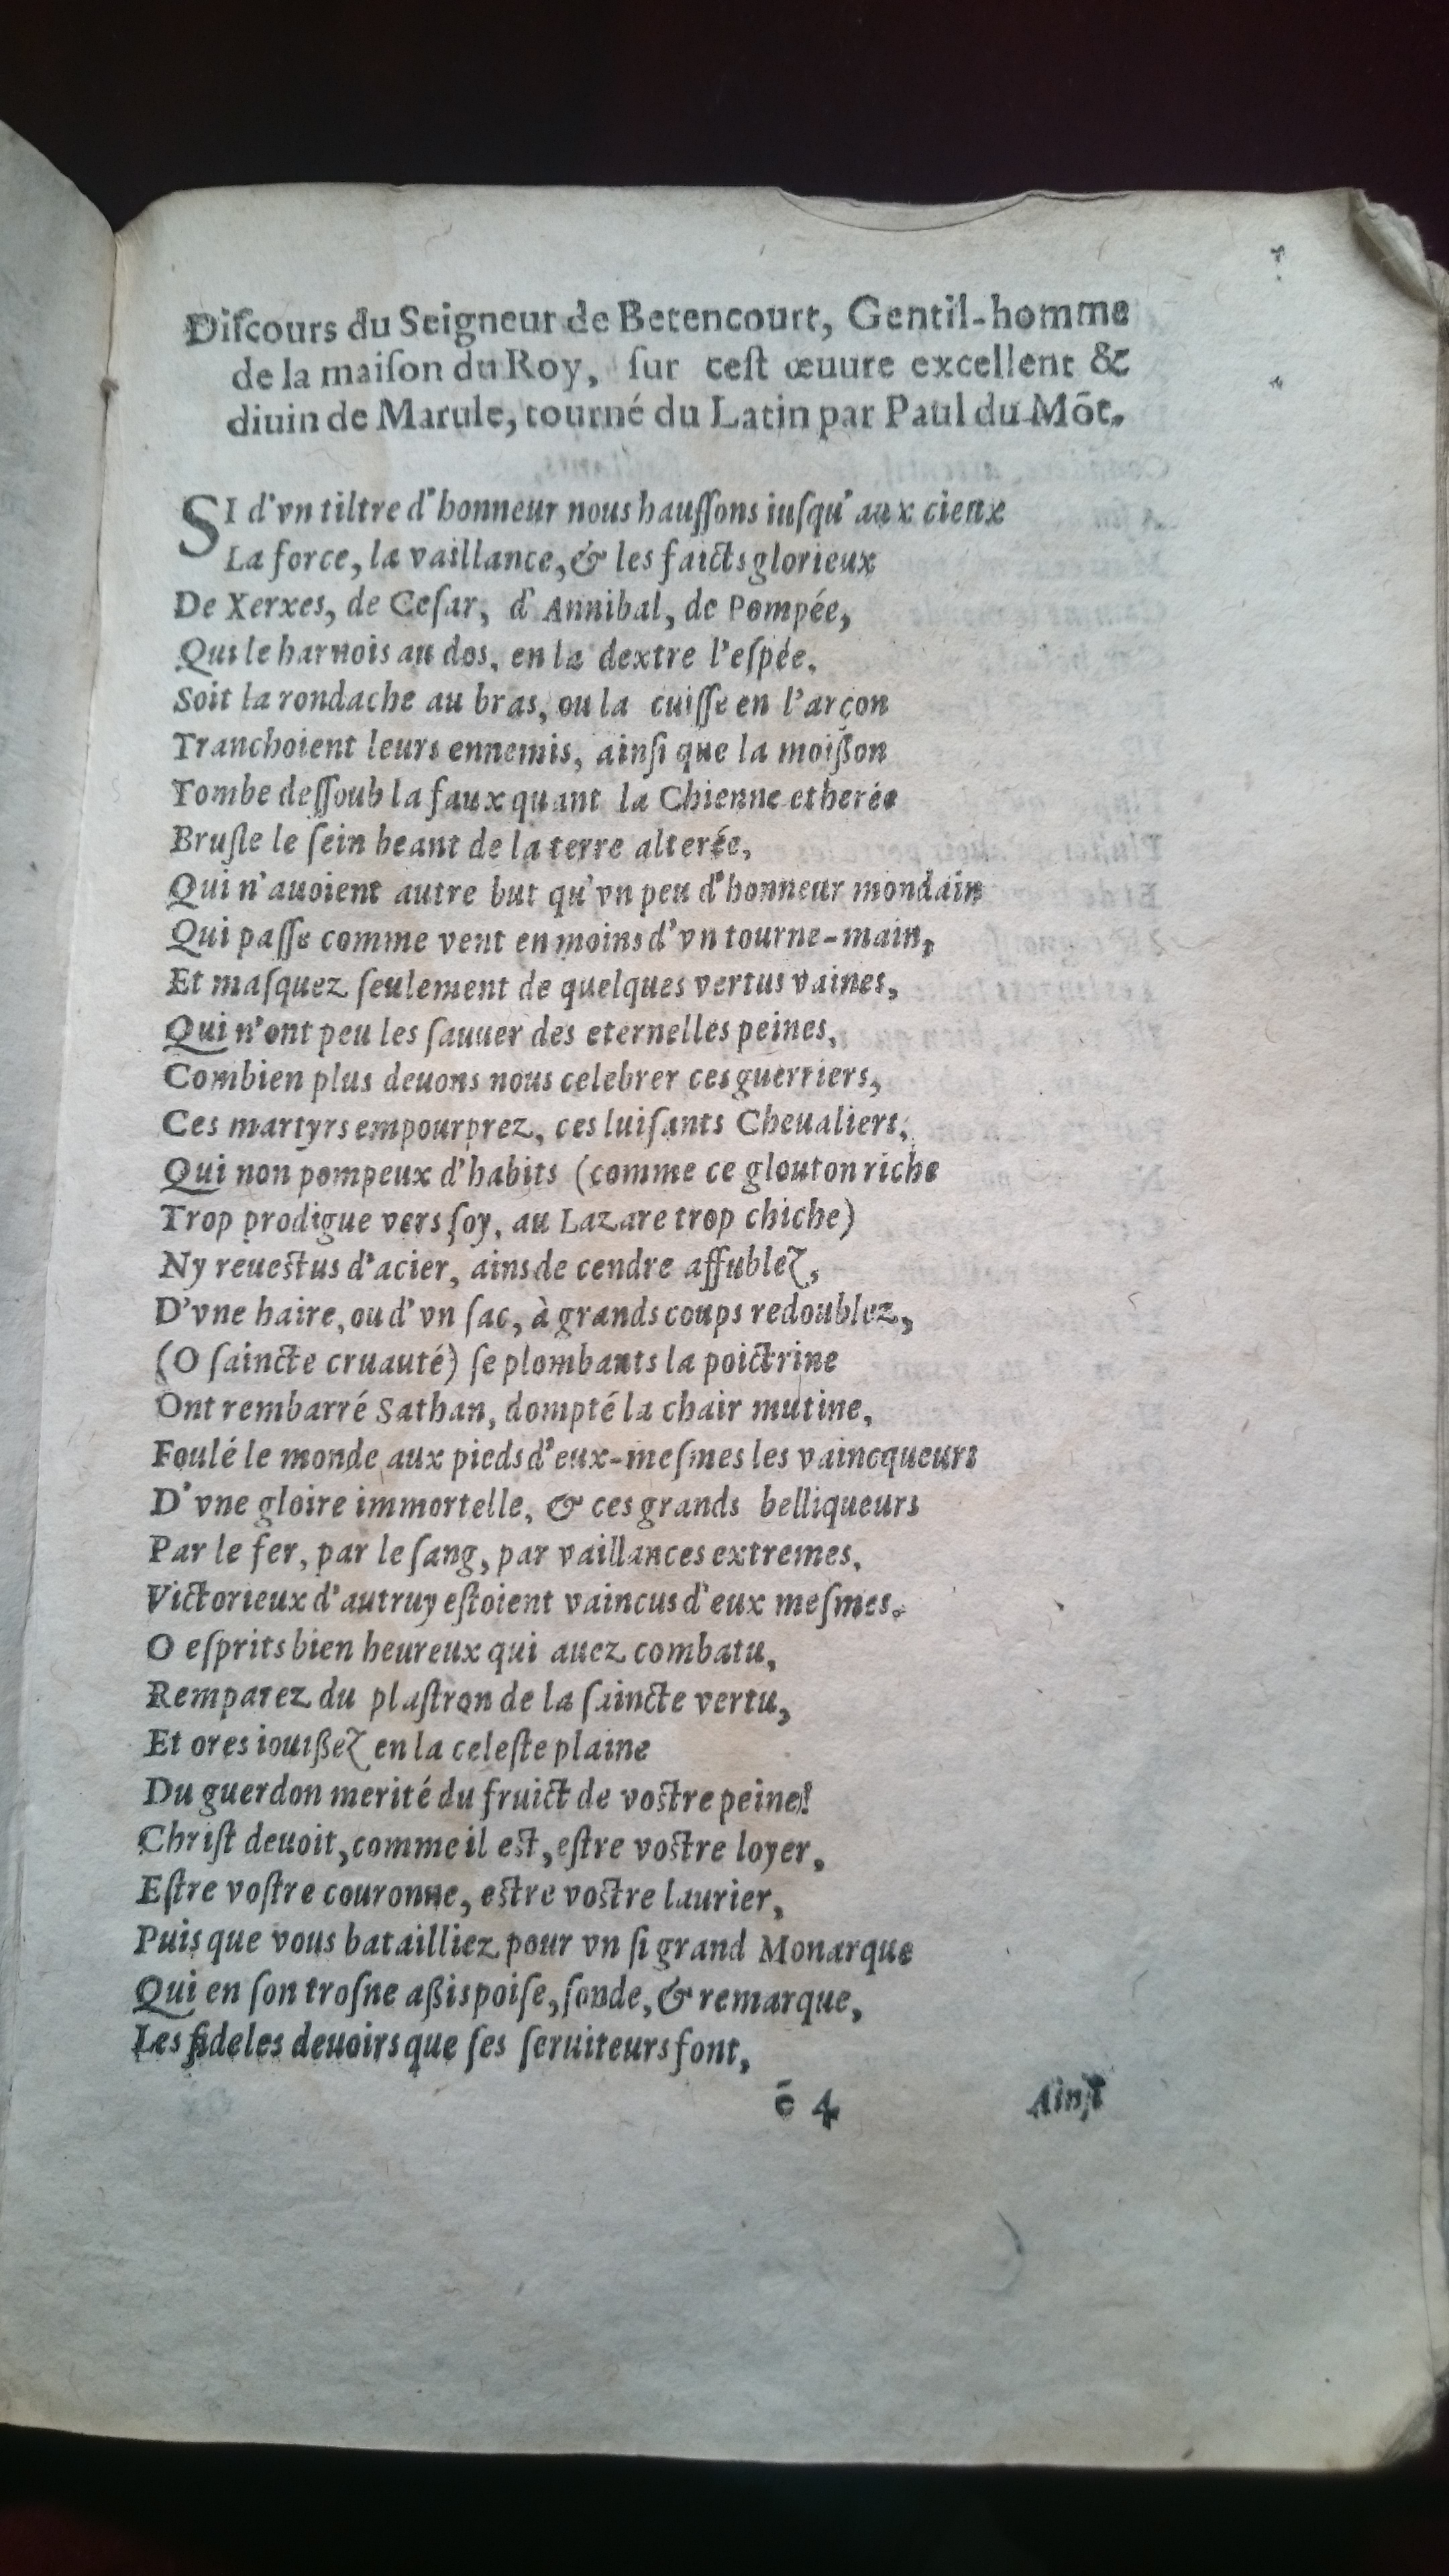 Diſcours du Seigneur de Betencourt, Gentil-homme
de la maiſon du Roy, ſur ceſt œuure excellent &
diuin de Marule, tourné du Latin par Paul du Mõt.
SI d'vn tiltre d'honneur nous hauſſons iuſqu'aux cieux
La force, la vaillance, & les faicts glorieux
De Xerxes, de Ceſar, d'Annibal, de Pompée,
Qui le harnois au dos, en la dextre l'eſpée,
Soit la rondache au bras, ou la cuiſſe en l'arçon
Tranchoient leurs ennemis, ainſi que la moißon
Tombe deſſoub la faux quant la Chienne etherée
Bruſle le ſein beant de la terre alterée,
Qui n'auoient autre but qu'vn peu d'honneur mondain
Qui paſſe comme vent en moins d'vn tourne-main,
Et maſquez ſeulement de quelques vertus vaines,
Qui n'ont peu les ſauuer des eternelles peines,
Combien plus deuons nous celebrer ces guerriers,
Ces martyrs empourprez, ces luiſants Cheualiers,
Qui non pompeux d'habits (comme ce glouton riche
Trop prodigue vers ſoy, au Lazare trop chiche)
Ny reueſtus d'acier, ains de cendre affublez,
D'vne haire, ou d'vn ſac, à grands coups redoublez,
(O ſaincte cruauté) ſe plombants la poictrine
Ont rembarré Sathan, dompté la chair mutine,
Foulé le monde aux pieds d'eux-meſmes les vaincqueurs
D'vne gloire immortelle, & ces grands belliqueurs
Par le fer, par le ſang, par vaillances extremes,
Victorieux d'autruy eſtoient vaincus d'eux meſmes.
O eſprits bien heureux qui auez combatu,
Remparez du plaſtron de la ſaincte vertu,
Et ores iouißez en la celeſte plaine
Du guerdon merité du fruict de voſtre peine!
Chriſt deuoit, comme il eſt, eſtre voſtre loyer,
Eſtre voſtre couronne, eſtre voſtre laurier,
Puis que vous batailliez pour vn ſi grand Monarque
Qui en ſon troſne aßis poiſe, ſonde, & remarque,
Les fideles deuoirs que ſes ſeruiteurs font,
ẽ 4 Ainſi